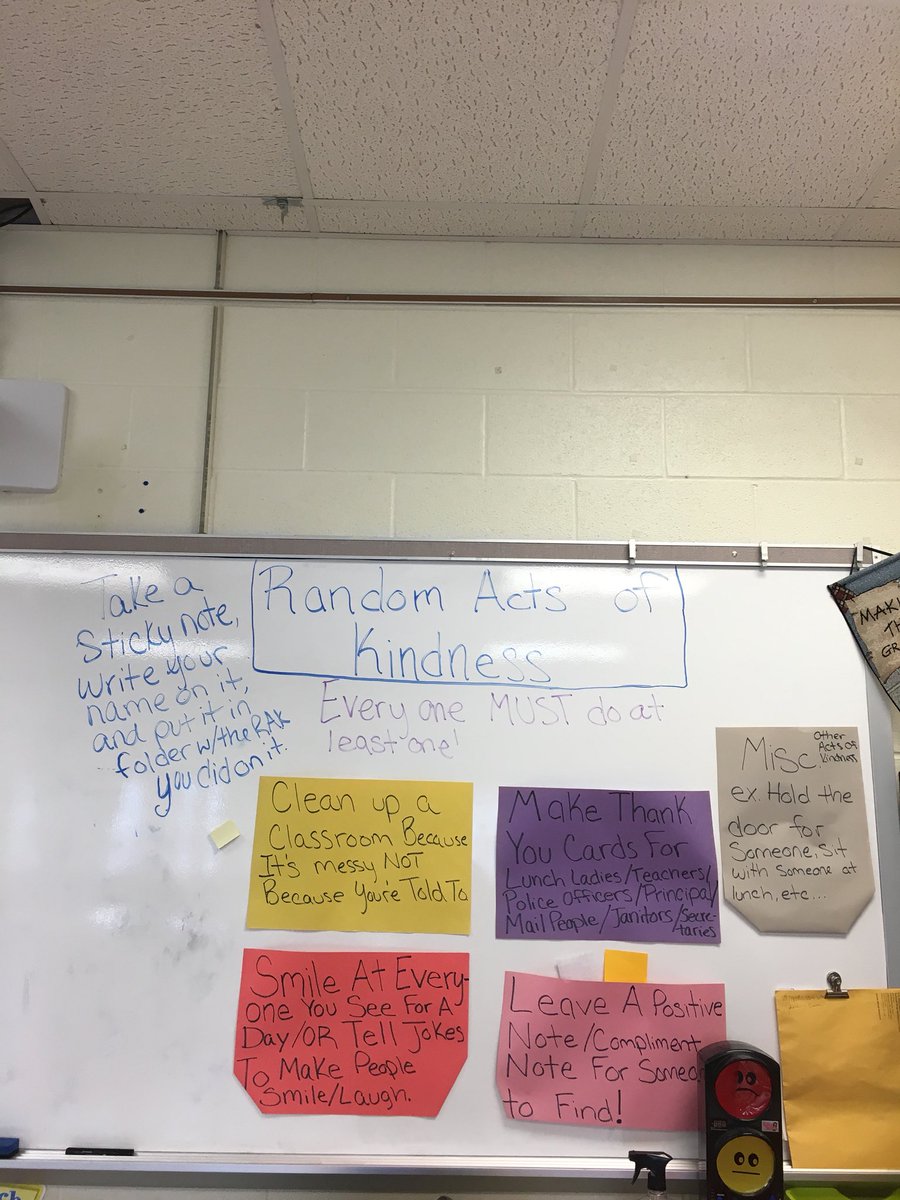 Take a
Sticky note,
write your
name on it,
and put it in
folder w/the RAK
you did on it.
Random Acts of
Kindness
Every one MUST do at
least one!
Clean up a
Classroom Because
It's messy NOT
Because You're Told To
Make Thank
You Cards For
Lunch Ladies/Teachers/
Police Officers/Principal/
Mail People/Janitors/Secre-
taries
Misc. Other
Acts of
Kindness
ex. Hold the
door for
Someone, sit
with someone at
lunch, etc...
Smile At Every-
one You See For A
Day/OR Tell Jokes
To Make People
Smile/Laugh.
Leave A Positive
Note/Compliment
Note For Someo
to Find!
MAKI
TH
GR